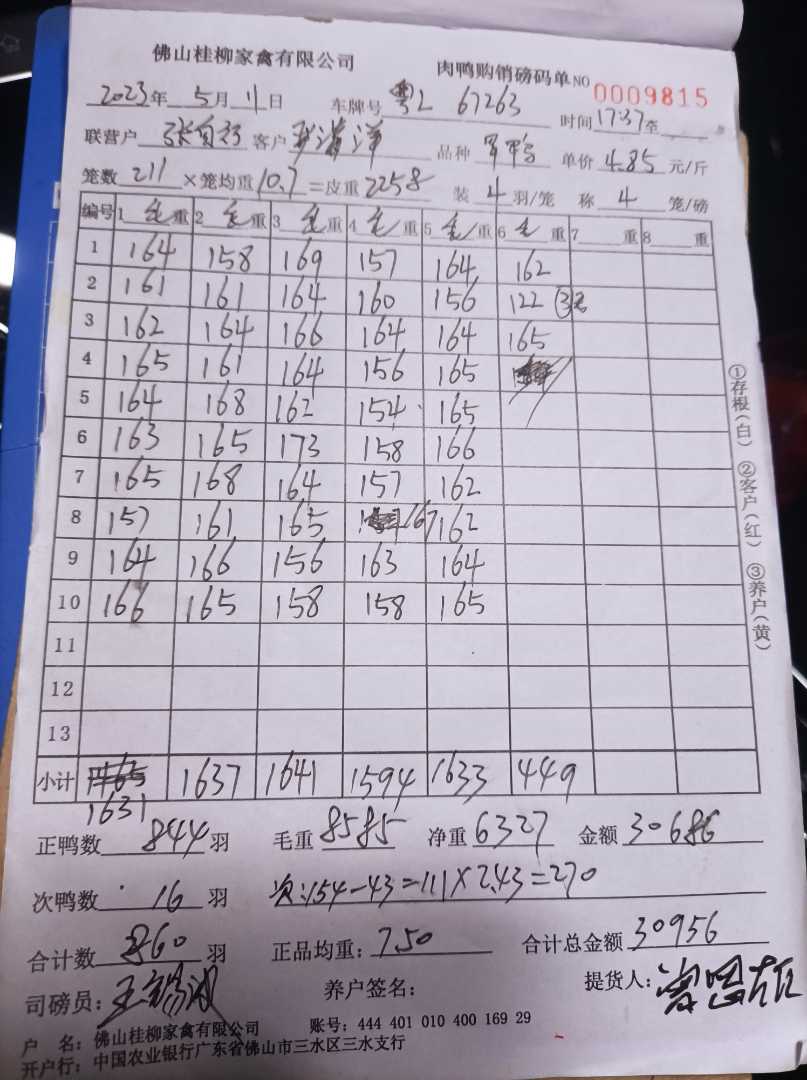 佛山桂柳家禽有限公司 肉鸭购销磅码单 NO 0009815
2023年 5月 11日 车牌号 粤L 67263 时间 17:37 至
联营户 客户 品种 单价 4.85 元/斤
笼数 211 ×笼均重 10.7 =皮重 2258 装 4 羽/笼 称 4 笼/磅
编号 1 毛重 2 毛重 3 毛重 4 毛重 5 毛重 6 毛重 7 重 8 重
1 164 158 169 157 164 162
2 161 161 164 160 156 122 ③笼
3 162 164 166 164 164 165
4 165 161 164 156 165
5 164 168 162 154 165
6 163 165 173 158 166
7 165 168 164 157 162
8 157 161 165 167 162
9 164 166 156 163 164
10 166 165 158 158 165
11
12
13
小计 1637 1641 1594 1633 449
1631
正鸭数 844 羽 毛重 8585 净重 6327 金额 30686
次鸭数 16 羽 次:154-43=111×2.43=270
合计数 860 羽 正品均重: 7.50 合计总金额 30956
司磅员: 养户签名: 提货人:
户 名: 佛山桂柳家禽有限公司 账号: 444 401 010 400 169 29
开户行: 中国农业银行广东省佛山市三水区三水支行
①存根(白) ②客户(红) ③养户(黄)